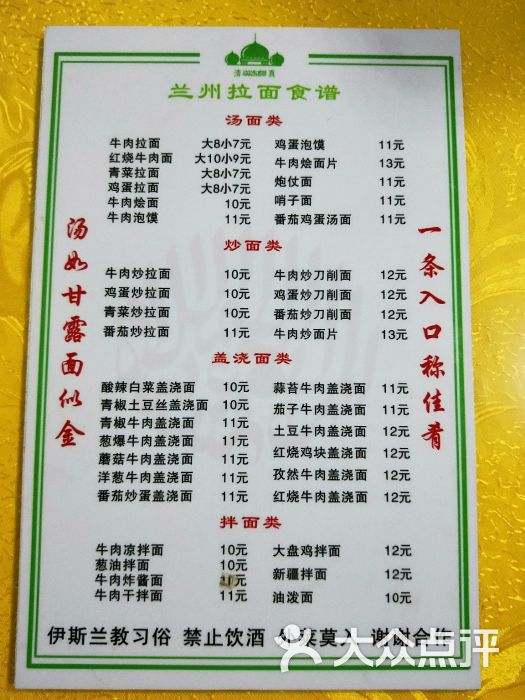 清 真
兰州拉面食谱
汤面类
牛肉拉面 大8小7元
红烧牛肉面 大10小9元
青菜拉面 大8小7元
鸡蛋拉面 大8小7元
牛肉烩面 10元
牛肉泡馍 11元
鸡蛋泡馍 11元
牛肉烩面片 13元
炮仗面 11元
哨子面 11元
番茄鸡蛋汤面 11元
炒面类
牛肉炒拉面 10元
鸡蛋炒拉面 10元
青菜炒拉面 10元
番茄炒拉面 11元
牛肉炒刀削面 12元
鸡蛋炒刀削面 12元
番茄炒刀削面 12元
牛肉炒面片 13元
盖浇面类
酸辣白菜盖浇面 10元
青椒土豆丝盖浇面 10元
青椒牛肉盖浇面 11元
葱爆牛肉盖浇面 11元
蘑菇牛肉盖浇面 11元
洋葱牛肉盖浇面 11元
番茄炒蛋盖浇面 11元
蒜苔牛肉盖浇面 11元
茄子牛肉盖浇面 11元
土豆牛肉盖浇面 12元
红烧鸡块盖浇面 12元
孜然牛肉盖浇面 12元
红烧牛肉盖浇面 12元
拌面类
牛肉凉拌面 10元
葱油拌面 10元
牛肉炸酱面 元
牛肉干拌面 11元
大盘鸡拌面 12元
新疆拌面 12元
油泼面 10元
汤如甘露面似金
一条入口称佳肴
伊斯兰教习俗 禁止饮酒 外菜莫入 谢谢合作
大众点评